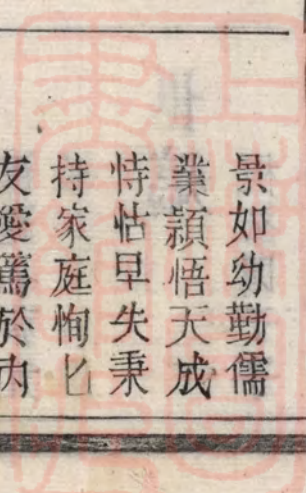 景如幼勤儒
業穎悟天成
恃怙早失秉
持家庭恂匕
友愛篤於內